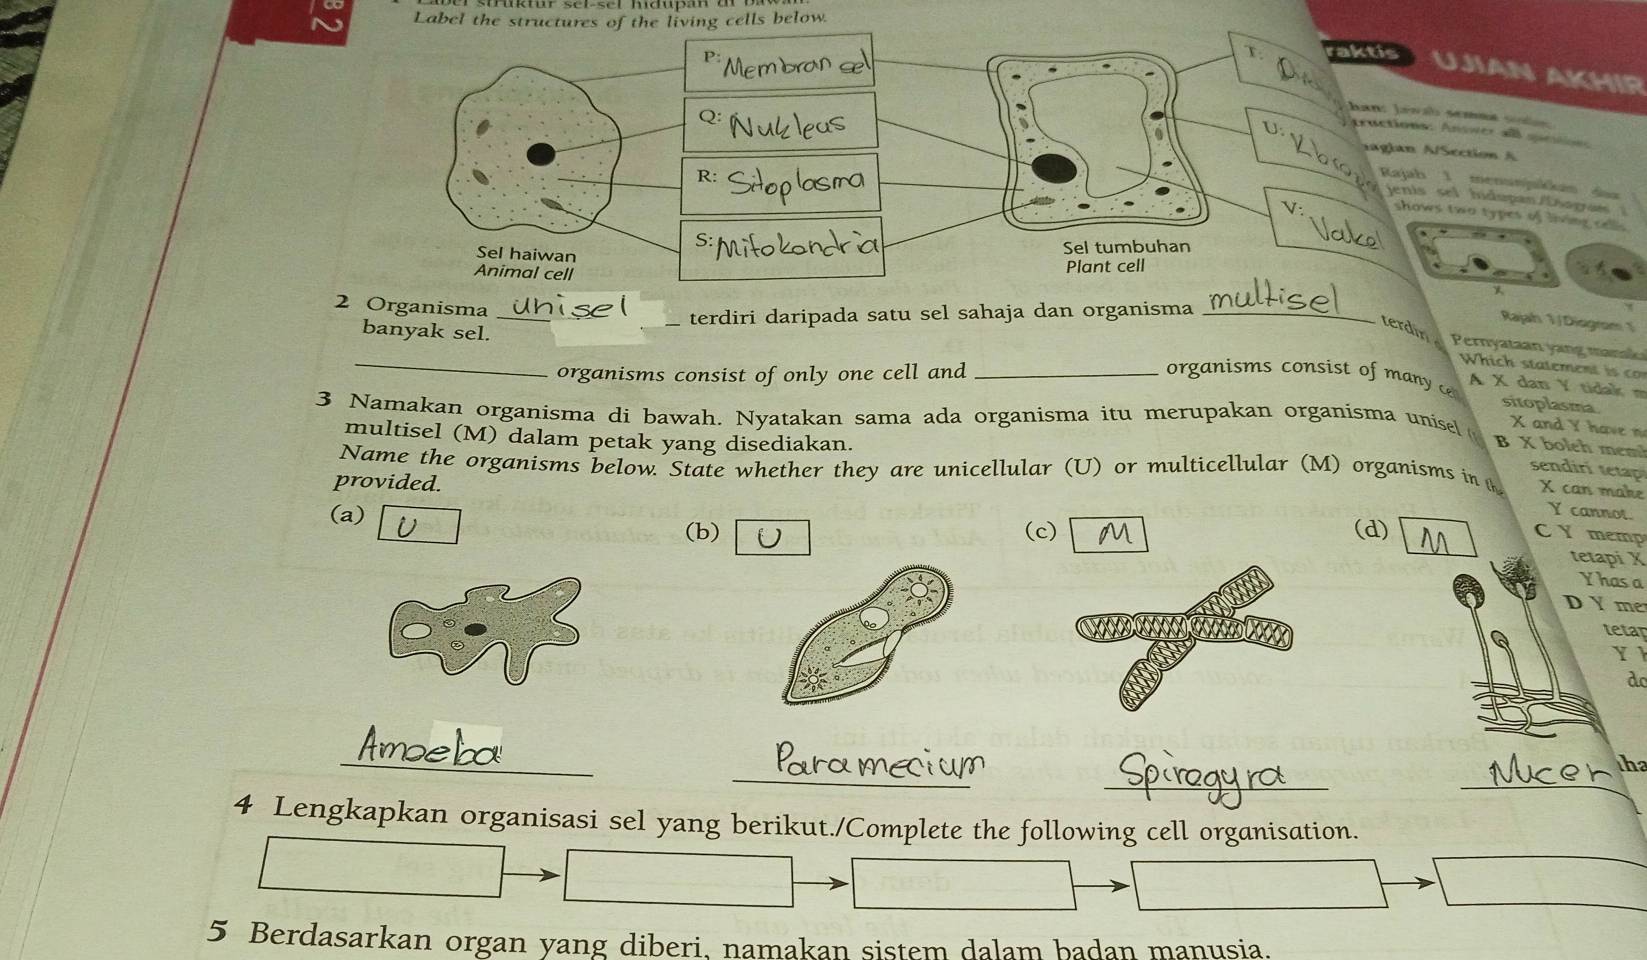 Label the structures of the living cells below.
P: Membran sel
Q: Nukleus
R: Sitoplasma
S: Mitokondria
T:
U:
V:
Sel haiwan
Animal cell
Sel tumbuhan
Plant cell
2 Organisma unisel terdiri daripada satu sel sahaja dan organisma multisel
banyak sel.
organisms consist of only one cell and organisms consist of many
3 Namakan organisma di bawah. Nyatakan sama ada organisma itu merupakan organisma unisel
multisel (M) dalam petak yang disediakan.
Name the organisms below. State whether they are unicellular (U) or multicellular (M) organisms in
provided.
(a) U
(b) U
(c) M
(d) M
Amoeba
Paramecium
Spirogyra
4 Lengkapkan organisasi sel yang berikut./Complete the following cell organisation.
5 Berdasarkan organ yang diberi, namakan sistem dalam badan manusia.
raktis
UJIAN AKHIR
Bagian A/Section A
Rajah 1
shows two types of living cells.
X
Y
Rajah 1/Diagram 1
Pernyataan yang
Which statement is
A X dan Y tidak
sitoplasma.
X and Y have
B X boleh
sendiri tetapi
X can make
Y cannot.
C Y
tetapi X
Y has a
D Y